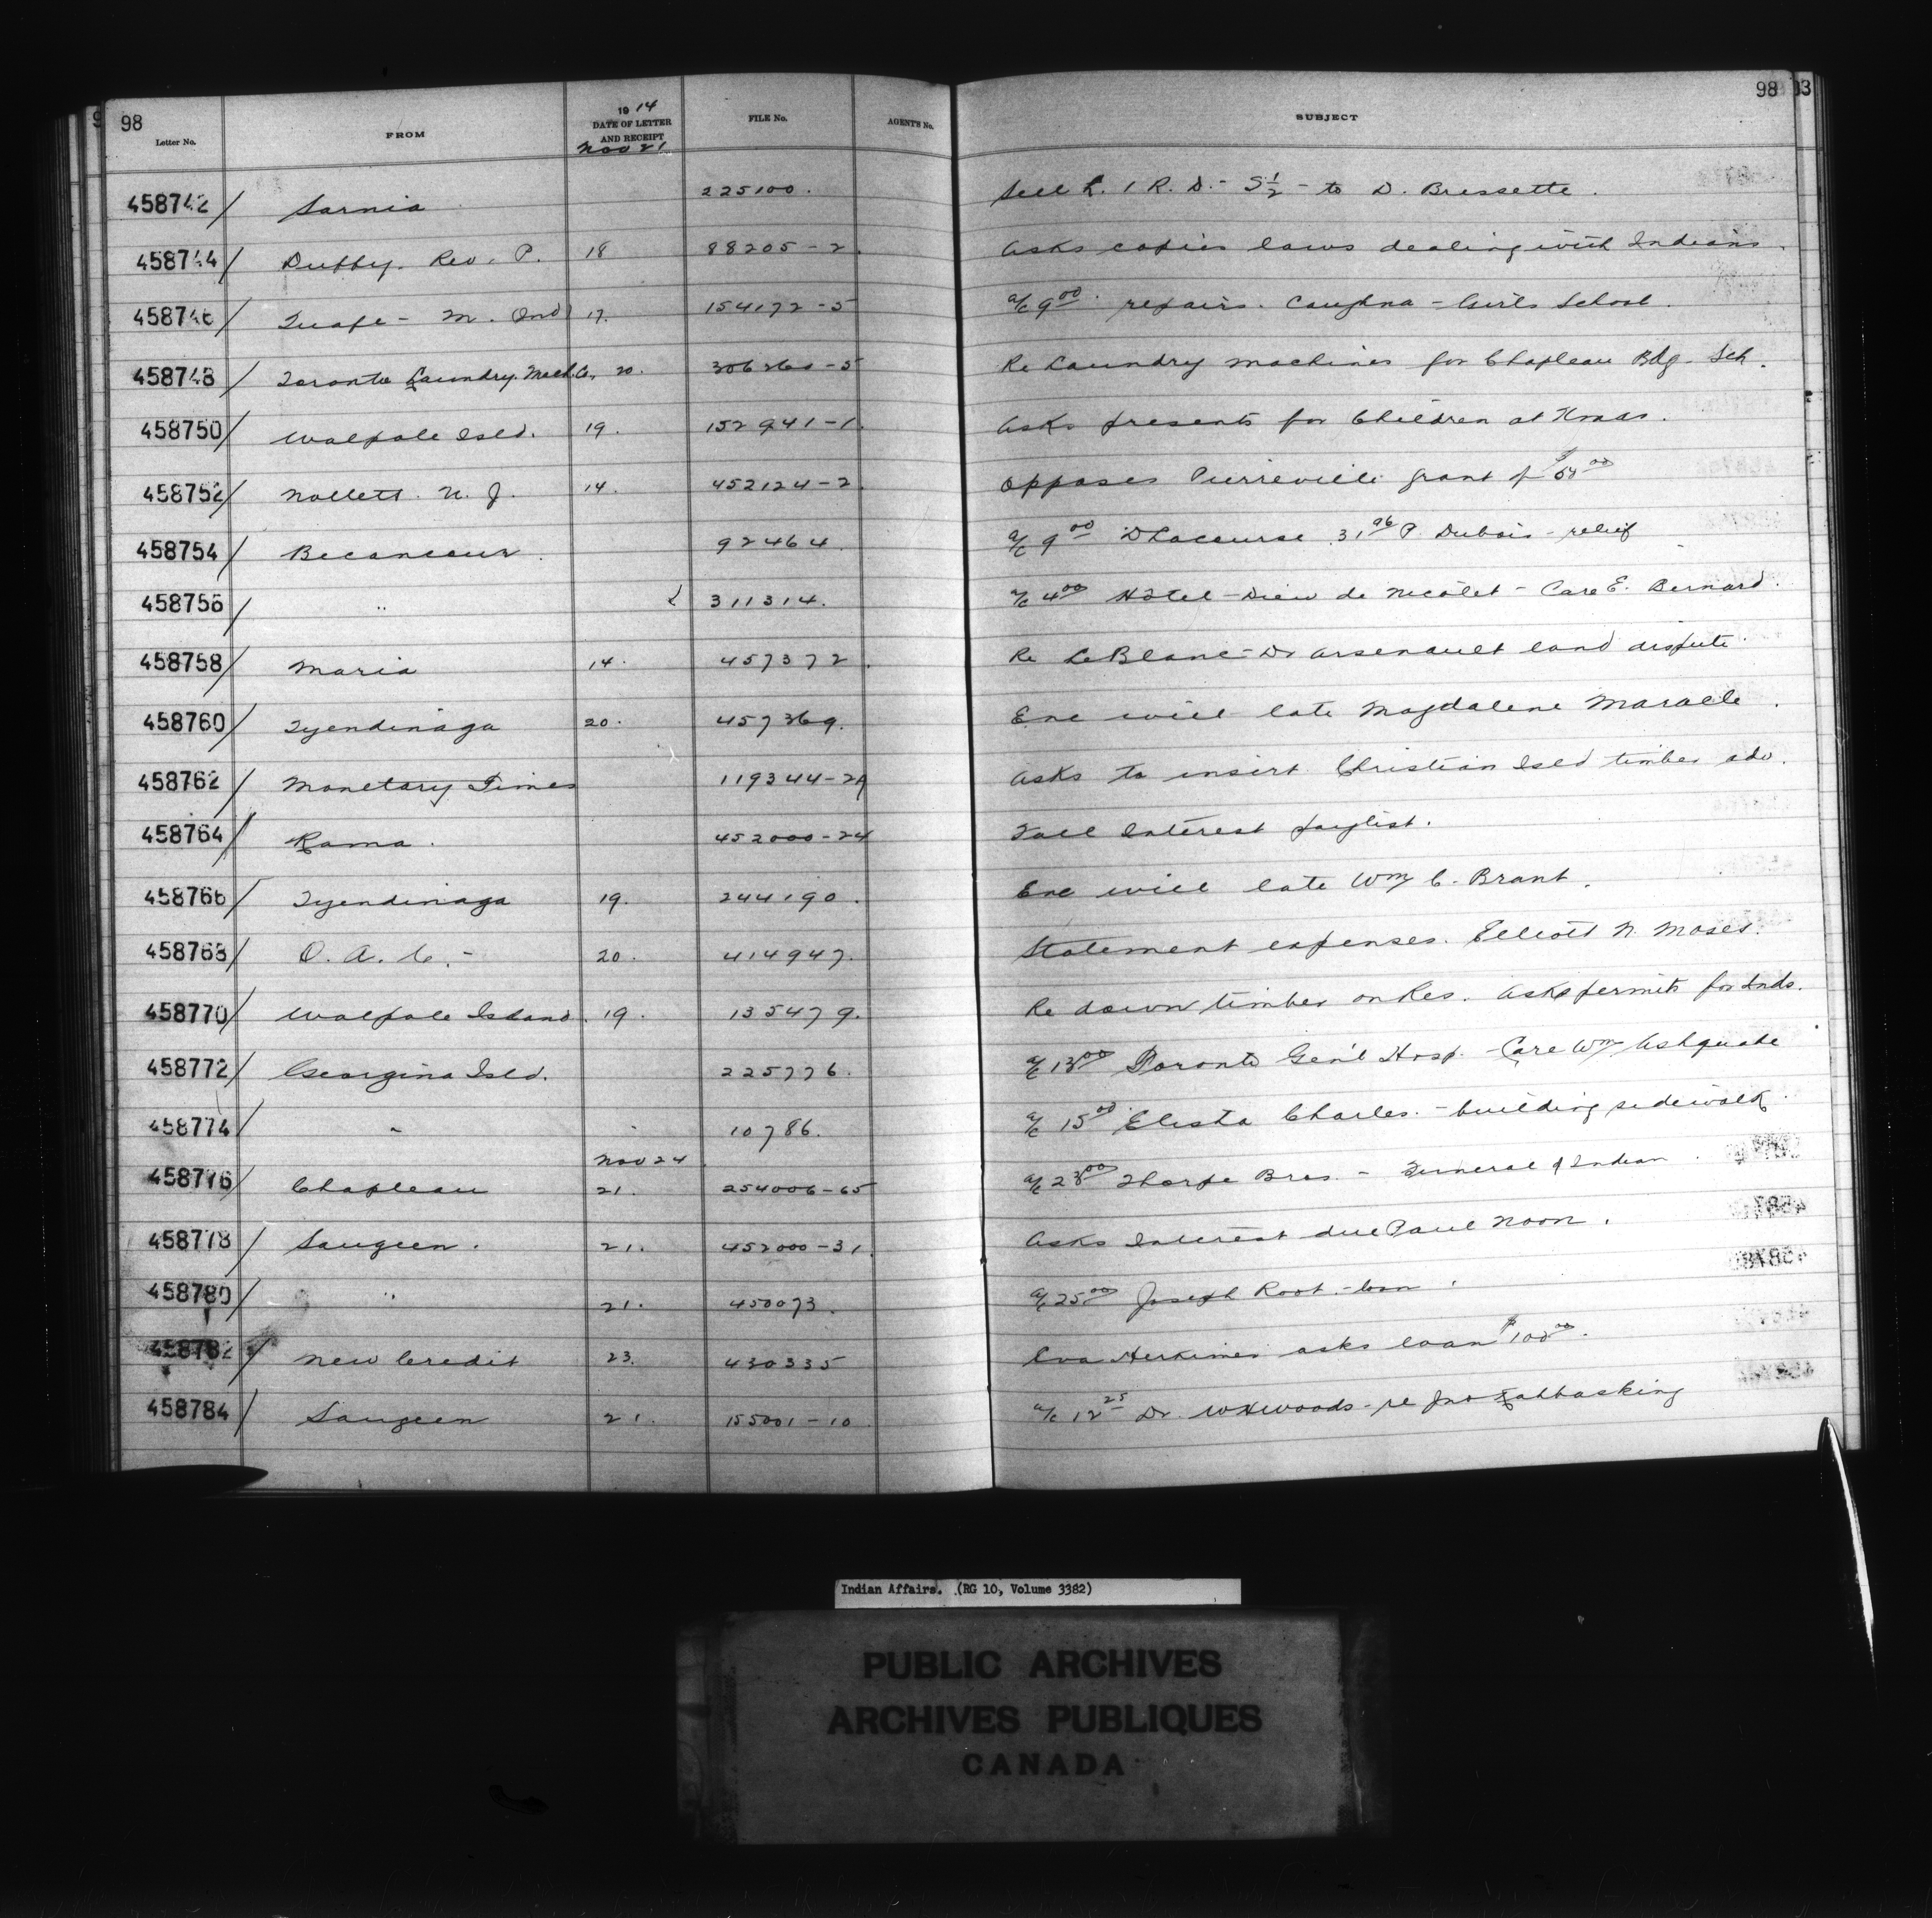 98 98 93
Letter No. FROM 1914 DATE OF LETTER AND RECEIPT FILE No. AGENT'S No. SUBJECT
Nov 21
458742 / Sarnia 225100. Sell L. 1 R. D. - S ½ - to D. Bressette.
458744 / Duffy. Rev. P. 18 88205-2. Asks copies laws dealing with Indians.
458746 / M. 17. 154172-5 a/c 9.00 repairs. Caughna - Girls School.
458748 / Toronto Laundry Mach. Co. 20. 306260-5 Re Laundry machines for Chapleau Bdg. Sch.
458750 / Walpole Isld. 19. 152941-1. Asks presents for Children at Xmas.
458752 / Nollett. N. J. 14. 452124-2. Opposes Pierreville grant of $50.00
458754 / Becancour. 92464. a/c 9.00 D Lacourse 31.96 P. Dubois - relief
458756 / " 311314. a/c 4.00 Hotel-Dieu de Nicolet - Care E. Bernard.
458758 / Maria 14. 457372. Re LeBlanc - Dr Arsenault land dispute
458760 / Tyendinaga 20. 457369. Enc will late Magdalene Maracle.
458762 / Monetary Times 119344-2A Asks to insert Christian Isld timber adv.
458764 / Rama. 452000-24 Fall Interest paylist.
458766 / Tyendinaga 19. 244190. Enc will late Wm C. Brant.
458768 / O. A. C. - 20. 414947. Statement expenses. Elliott N. Moses.
458770 / Walpole Island. 19. 135479. Re down timber on Res. Asks permits for Inds.
458772 / Georgina Isld. 225776. a/c 13.00 Toronto Gen'l Hosp. - Care Wm Ashquabe
458774 / " 10786. a/c 15.00 Elisha Charles. - building sidewalk.
Nov 24
458776 / Chapleau 21. 254006-65 a/c 23.00 Thorpe Bros. - Funeral of Indian.
458778 / Saugeen. 21. 452000-31. Asks Interest due Paul Noon.
458780 / " 21. 450073. a/c 25.00 Joseph Root. - loan
458782 / New Credit 23. 430335 Eva Herkimer asks loan $100.00.
458784 / Saugeen 21. 155001-10 a/c 12.25 Dr. W H Woods - re Jno
Indian Affairs. (RG 10, Volume 3382)
PUBLIC ARCHIVES
ARCHIVES PUBLIQUES
CANADA